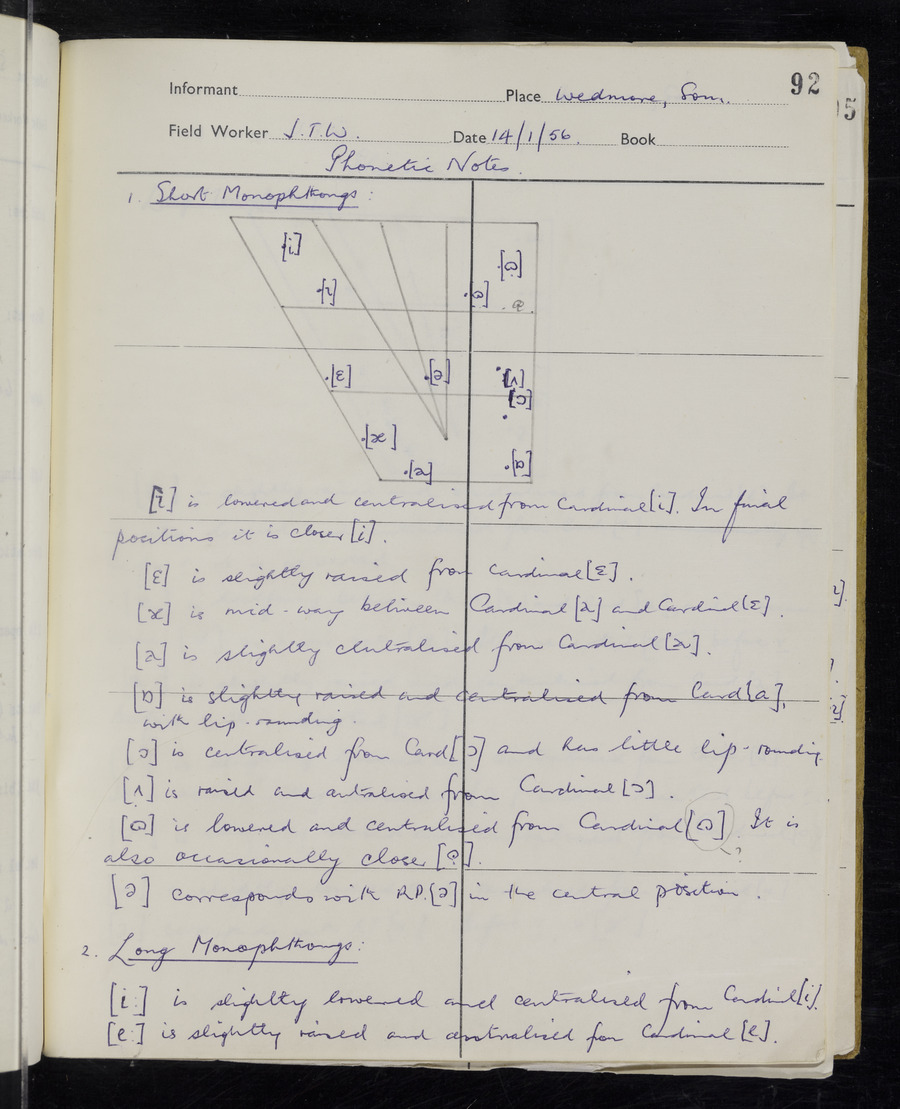 92
Informant Place Wedmore, Som.
15
Field Worker J.T.W. Date 14/1/56. Book
Phonetic Notes.
1. Short Monophthongs:
[i] [ɷ]
[ɩ] [ɷ]
[ɛ] [ə] [ʌ]
[ɔ]
[æ]
[a] [ɒ]
[ɩ] is lowered and centralised from Cardinal [i]. In final
positions it is closer [i].
[ɛ] is slightly raised from Cardinal [ɛ].
[æ] is mid-way between Cardinal [a] and Cardinal [ɛ].
[a] is slightly centralised from Cardinal [a].
[ɒ] is slightly raised and centralised from Card [ɑ],
with lip-rounding.
[ɔ] is centralised from Card [ɔ] and has little lip-rounding.
[ʌ] is raised and centralised from Cardinal [ɔ].
[ɷ] is lowered and centralised from Cardinal [ɷ]. It is
?
also occasionally closer [ɷ̣].
[ə] corresponds with R.P. [ə] in the central position.
2. Long Monophthongs:
[i:] is slightly lowered and centralised from Cardinal [i].
[e:] is slightly raised and centralised from Cardinal [e].